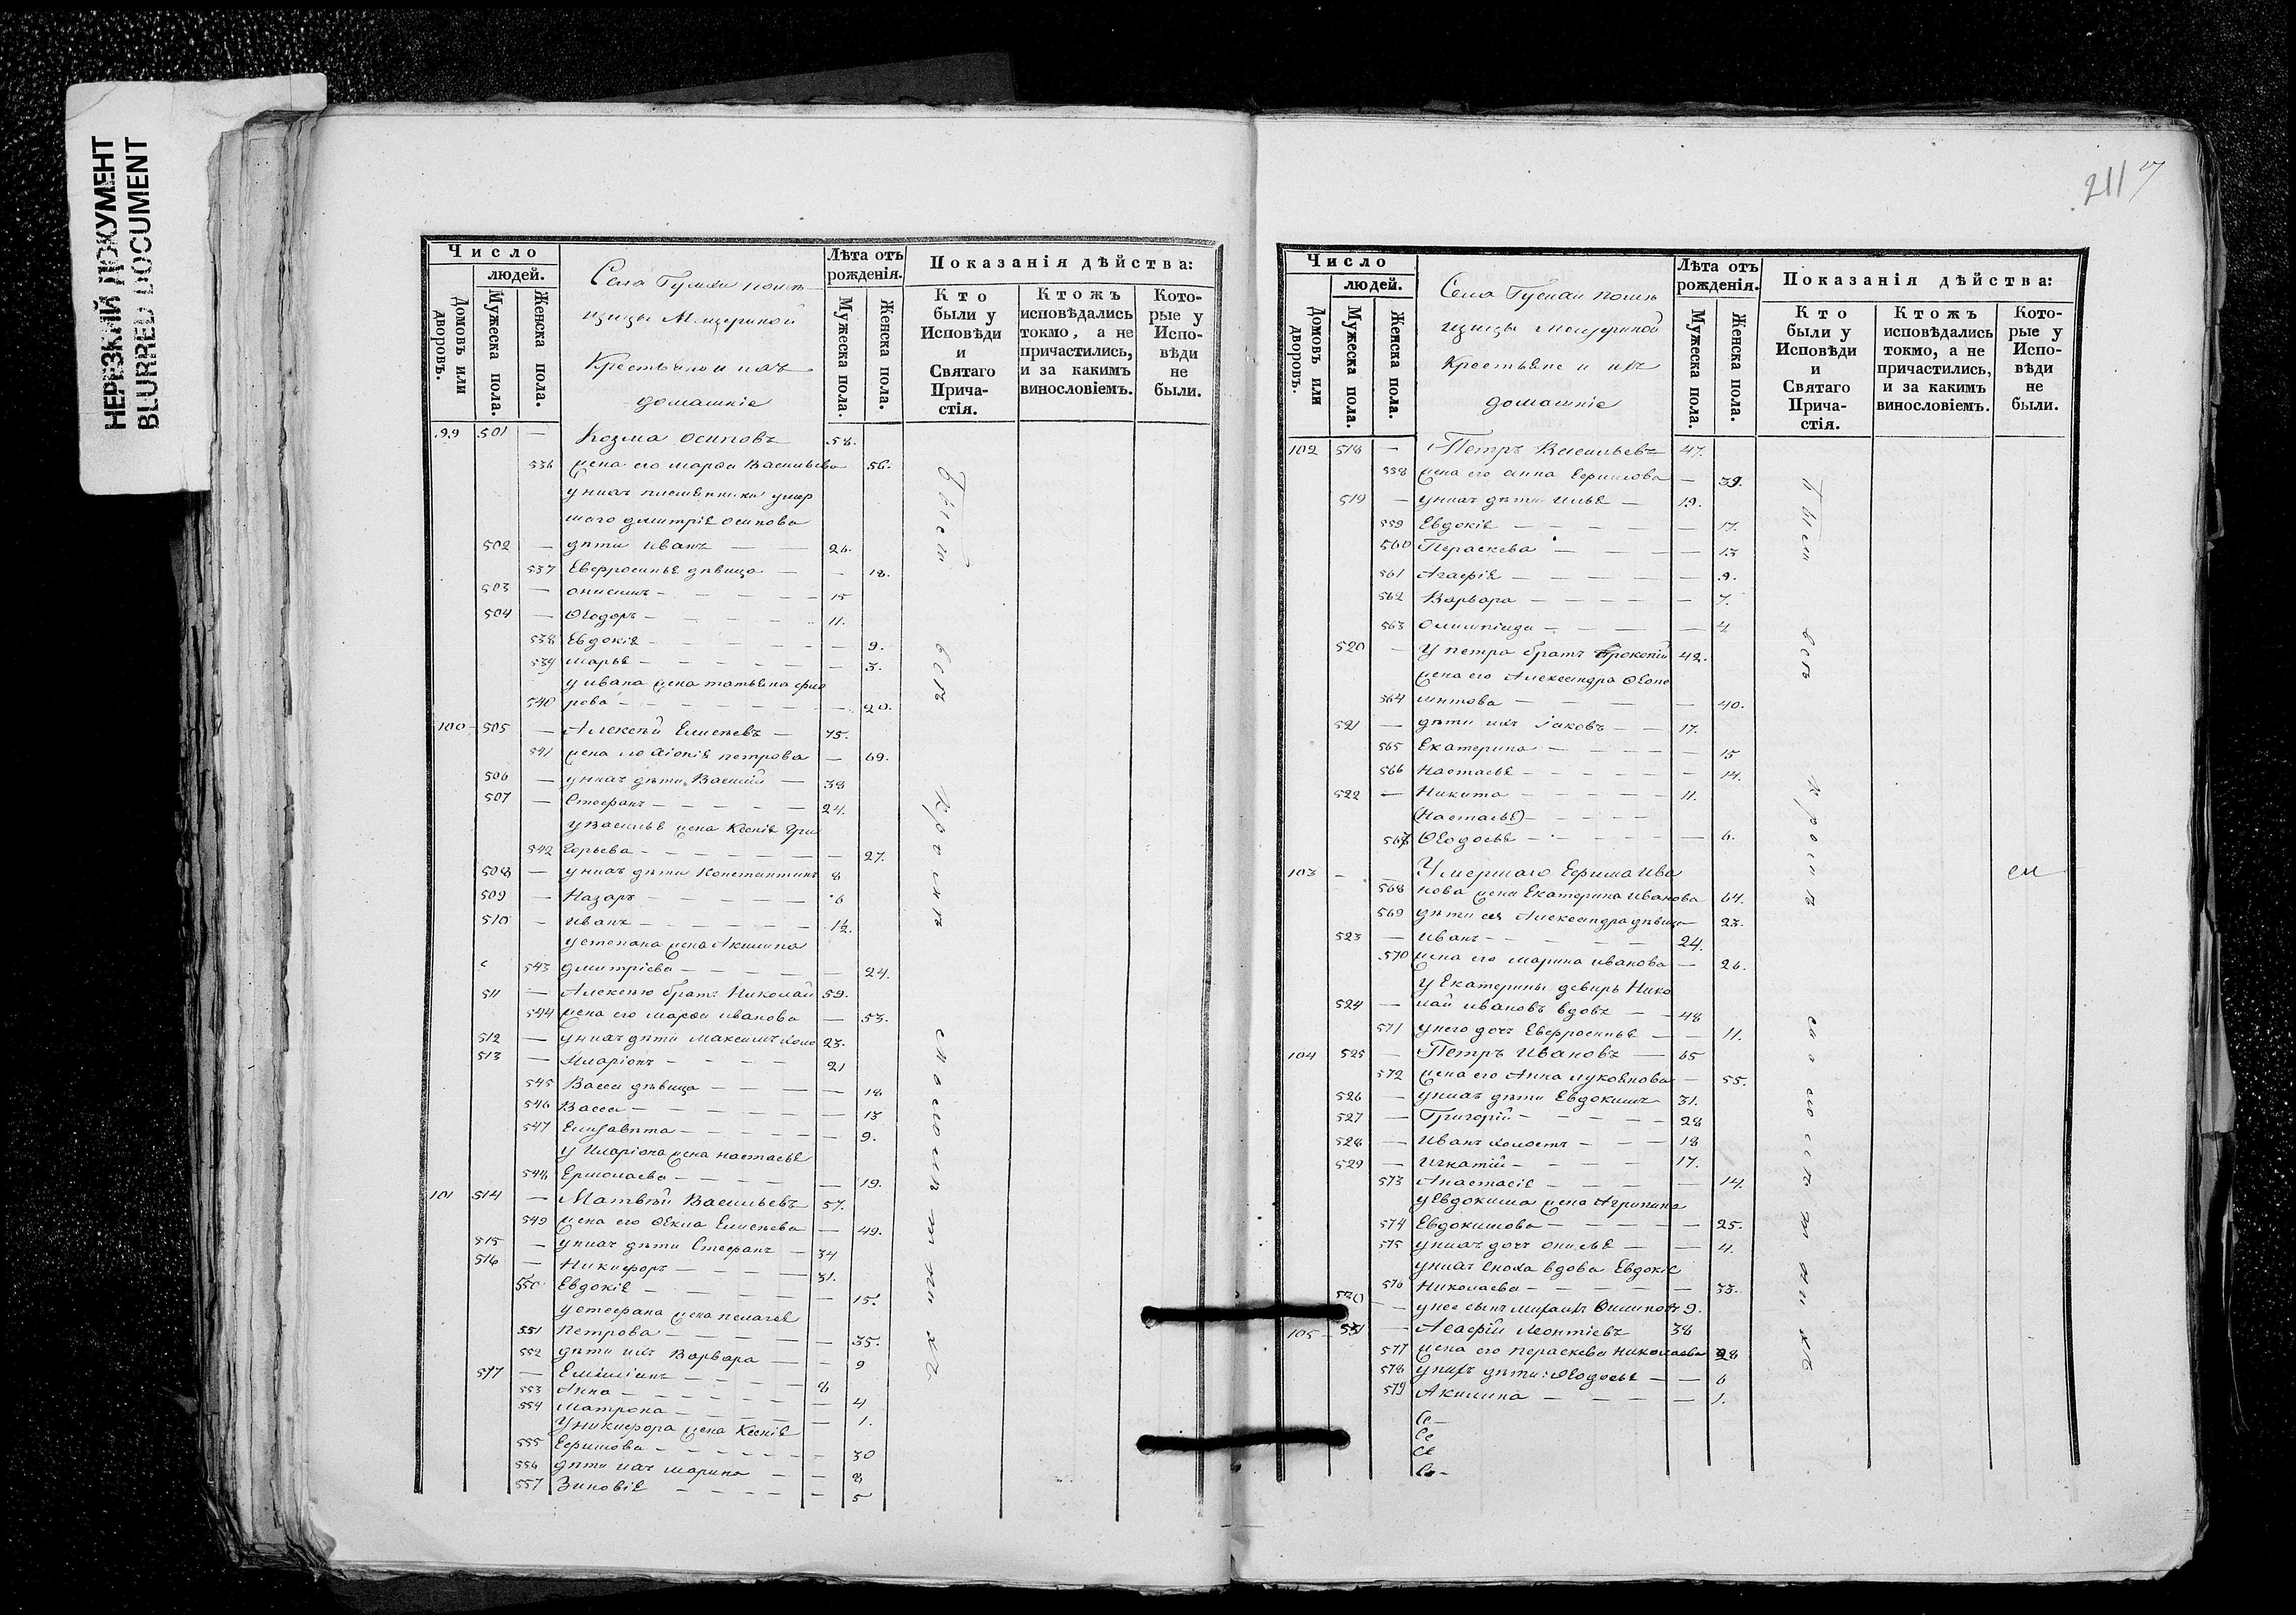 НЕРЕЗКИЙ ДОКУМЕНТ
BLURRED DOCUMENT
Число
людей.
Домовъ или дворовъ.
Мужеска пола.
Женска пола.
Села
помѣ
щицы
Крестьяне и ихъ
домашніе
Лѣта отъ рожденія.
Мужеска пола.
Женска пола.
Показанія дѣйства:
Кто были у Исповѣди и Святаго Причастія.
Ктожъ исповѣдались токмо, а не причастились, и за какимъ винословіемъ.
Которые у Исповѣди не были.
99 501 — Козма Осиповъ 58.
536 жена его Марѳа Васильева 56.
у нихъ племянники умер
шаго Дмитрія Осипова
502 — дѣти Иванъ — — 26.
537 Евфросинья дѣвица — — 18.
503 — Онисимъ — — 15
504 — Ѳеодоръ — — 11.
538 Евдокія — — 9.
539 Марья — — 3.
у Ивана жена Татьяна
540 рова — — 20.
100 505 — Алексѣй Елисѣевъ — 75.
541 жена его Петрова — 69.
506 — у нихъ дѣти Василій — 38
507 — Стефанъ — — 24.
у Василья жена Ксенія Гри
542 горьева — — 27.
508 — у нихъ дѣти Константинъ 8
509 — Назаръ — — 6
510 — Иванъ — — 1½.
у Степана жена Акилина
543 Дмитріева — — 24.
511 — Алексѣю братъ Николай 59.
544 жена его Марѳа Иванова — 53.
512 — у нихъ дѣти Максимъ холо 23.
513 — Иларіонъ — — 21
545 Васса дѣвица — — 18
546 Васса — — 13
547 Елисавета — — 9.
у Иларіона жена Настасья
548 Ермолаева — — 19.
101 514 — Матвѣй Васильевъ 57.
549 жена его Ѳекла Елисѣева — 49.
515 — у нихъ дѣти Стефанъ — 34
516 — Никифоръ — — 31.
550 Евдокія — — 15.
у Стефана жена Пелагея
551 Петрова — — 35.
552 дѣти ихъ Варвара — — 9
517 — Емиліанъ — — 8
553 Анна — — 4
554 Матрона — — 1.
у Никифора жена Ксенія
555 Ефимова — — 30
556 дѣти ихъ Марина — — 8
557 Зиновія — — 5
всѣ
кромѣ
малолѣтнихъ
211
Число
людей.
Домовъ или дворовъ.
Мужеска пола.
Женска пола.
Села
помѣ
щицы
Крестьяне и ихъ
домашніе
Лѣта отъ рожденія.
Мужеска пола.
Женска пола.
Показанія дѣйства:
Кто были у Исповѣди и Святаго Причастія.
Ктожъ исповѣдались токмо, а не причастились, и за какимъ винословіемъ.
Которые у Исповѣди не были.
102 518 — Петръ Васильевъ 47.
558 жена его Анна Ефимова — 39.
519 — у нихъ дѣти Илья — 19.
559 Евдокія — — 17.
560 Параскева — — 13
561 Агафія — — 9.
562 Варвара — — 7.
563 Олимпіада — — 4
520 — у Петра братъ Прокопій 42.
жена его Александра Ѳеопе
564 мптова — — 40.
521 — дѣти ихъ Іаковъ — — 17.
565 Екатерина — — 15
566 Настасья — — 14.
522 — Никита — — 11.
(Настасья) — —
567 Ѳеодосья — — 6.
103 — — Умершаго Ефима Ива
568 нова жена Екатерина Иванова 64.
569 дѣти ея Александра дѣвица 23.
523 — Иванъ — — 24.
570 жена его Марина Иванова — 26.
у Екатерины деверь Нико
524 — лай Ивановъ вдовъ — 48
571 у него дочь Евфросинья — — 11.
104 525 — Петръ Ивановъ — 65
572 жена его Анна Лукоянова — 55.
526 — у нихъ дѣти Евдокимъ 31.
527 — Григорій — — 28
528 — Иванъ холостъ — — 18
529 — Игнатій — — 17.
573 Анастасія — — 14.
у Евдокима жена Агрипина
574 Евдокимова — — 25.
575 у нихъ дочь — — 4.
у нихъ сноха вдова Евдокія
576 Николаева — — 33.
530 — у нее сынъ Михаилъ 9.
105 531 — Леонтіевъ 38
577 жена его Параскева Николаева 28
578 у нихъ дѣти: Ѳеодосья — — 6
579 Акилина — — 1.
всѣ
кромѣ
малолѣтнихъ